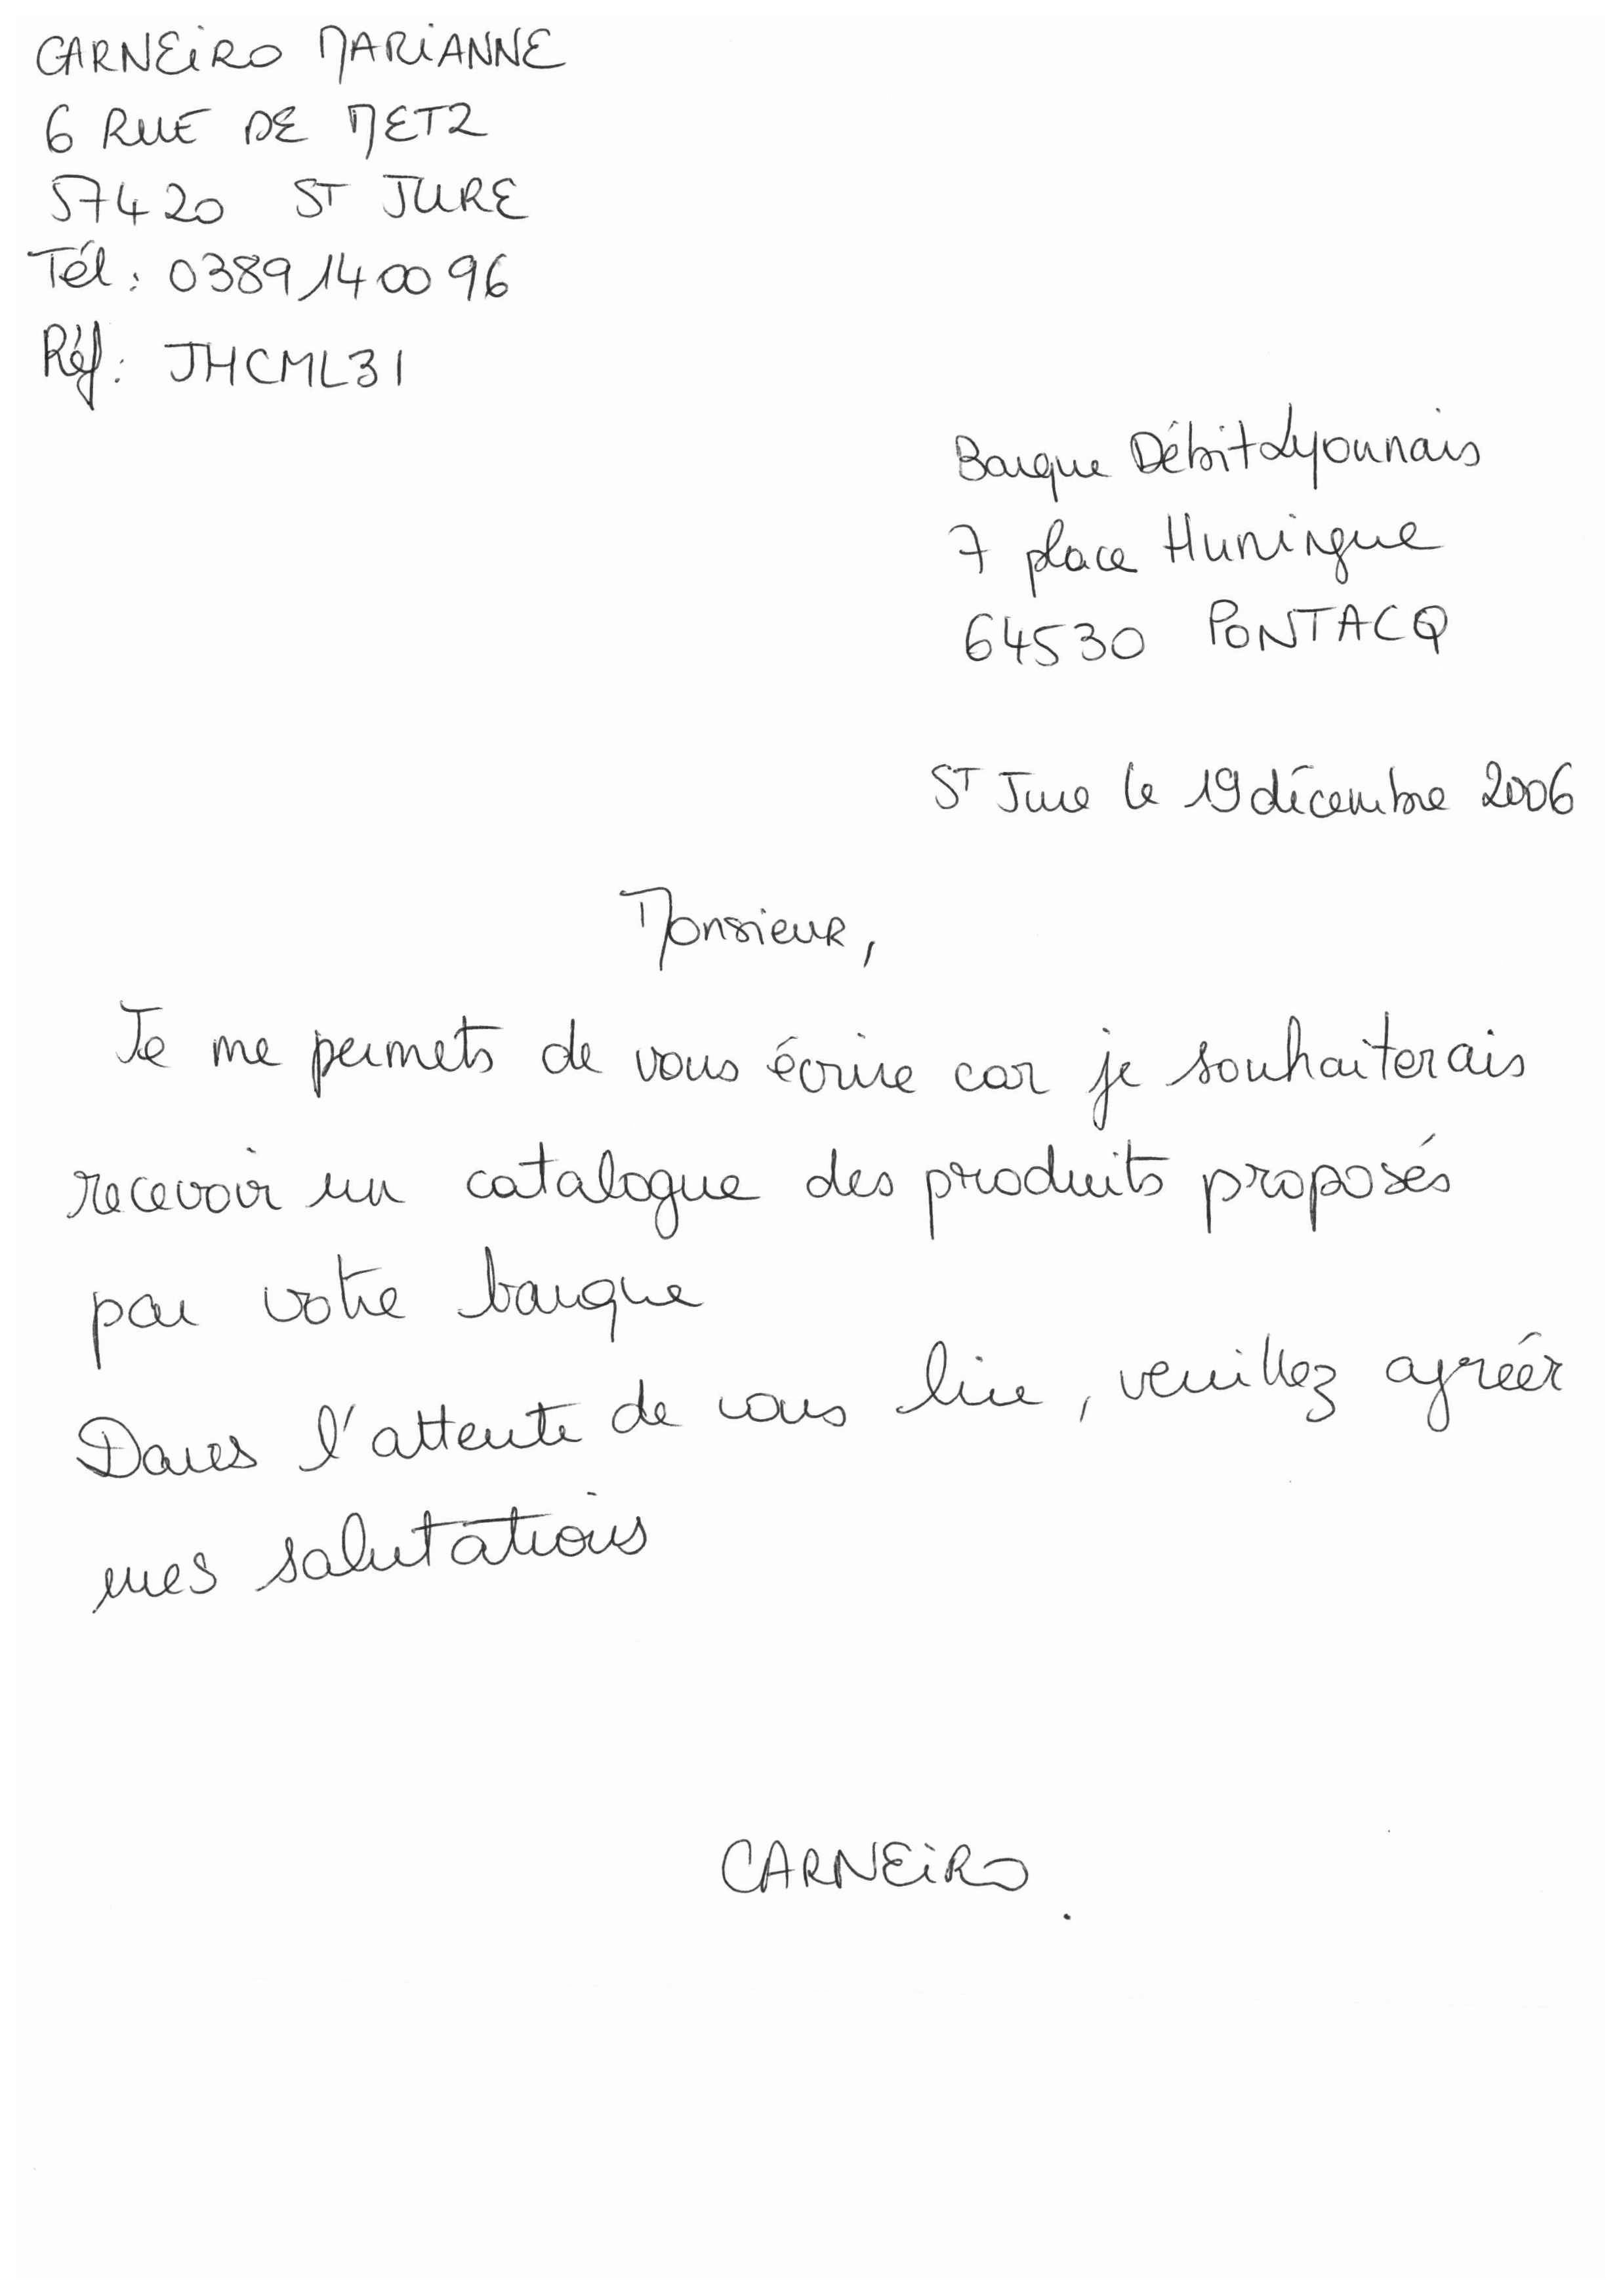 CARNEIRO MARIANNE
6 RUE DE METZ
57420 ST JURE
Tél : 0389140096
Réf : JHCML31
Banque Débit Lyonnais
7 place Huningue
64530 PONTACQ
ST Jure le 19 décembre 2006
Monsieur,
Je me permets de vous écrire car je souhaiterais
recevoir un catalogue des produits proposés
par votre banque
Dans l'attente de vous lire, veuillez agréér
mes salutations
CARNEIRO.